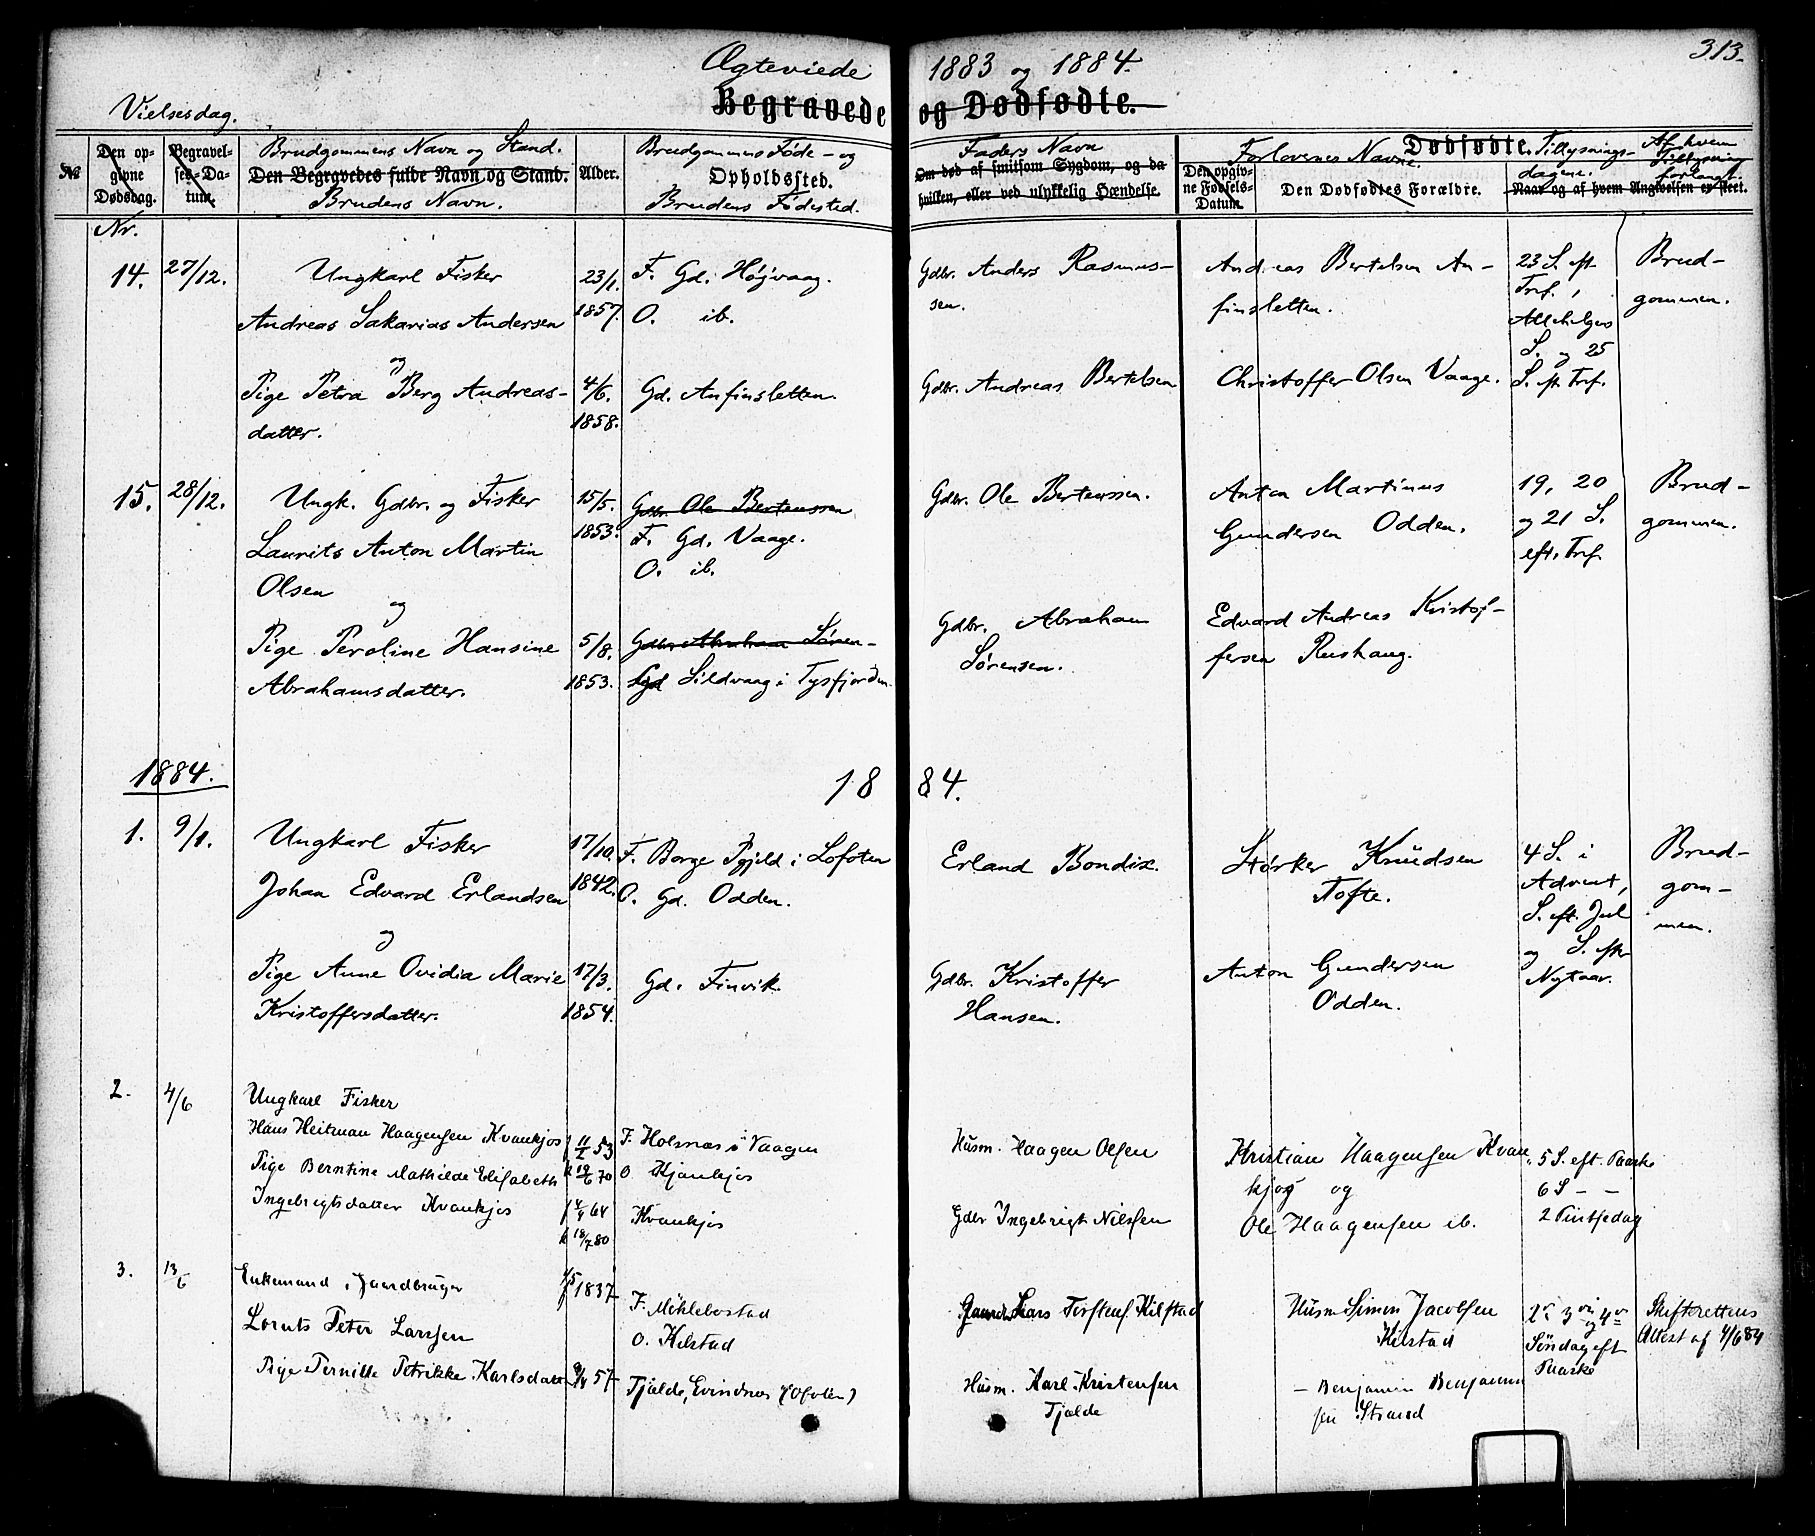 313.
Ægteviede 1883 og 1884.
Begravede og Dødfødte.
Vielsesdag.
No.
Den opgivne Dødsdag.
Begravelses-Datum.
Brudgommens Navn og Stand.
Den Begravedes fulde Navn og Stand.
Brudens Navn.
Alder.
Brudgommens Føde- og
Opholdssted.
Brudens Fødested.
Faders Navn
Om død af smitsom Sygdom, og da
hvilken, eller ved ulykkelig Hændelse.
Forlovernes Navne.
Dødfødte.
Den opgivne Fødsels-Datum.
Den Dødfødtes Forældre.
Tillysningsdagene.
Af hvem Tillysning forlangt.
Naar og af hvem Angivelsen er skeet.
Nr.
14. 27/12. Ungkarl Fisker 23/1. F. Gd. Højvaag. Gdbr. Anders Rasmus- Andreas Bertelsen An- 23 S. eft. Brud-
Andreas Sakarias Andersen 1857. O. ib. sen. finsletten. Tref., gommen.
Allehelgens
og S. og 25
Pige Petra Berg Andreas- 4/6. Gd. Anfinsletten. Gdbr. Andreas Bertelsen Christoffer Olsen Vaage. S. eft. Tref.
datter. 1858.
15. 28/12. Ungk. Gdbr. og Fisker 15/5. Gdbr. Ole Berteussen Gdbr. Ole Berteussen. Anton Martinus 19, 20 Brud-
Laurits Anton Martin 1853. F. Gd. Vaage. Gundersen Odden. og 21 S. gommen.
Olsen O. ib. eft. Tref.
og
Pige Peroline Hansine 5/8. Gdbr. Abraham Søren- Gdbr. Abraham Edvard Andreas Kristof-
Abrahamsdatter. 1853. Sildvaag i Tysfjorden. Sørensen. fersen Rushaug.
1884. 18 84.
1. 9/1. Ungkarl Fisker 17/10. F. Borge Pgjeld i Lofoten Erland Bondix. Størker Knudsen 4 S. i Brud-
Johan Edvard Erlandsen 1842. O. Gd. Odden. Tofte. Advent, gom-
S. eft. Jul men.
og og S. efter
Pige Anne Ovidia Marie 17/3. Gd. Finvik. Gdbr. Kristoffer Anton Gundersen Nytaar.
Kristoffersdatter. 1854. Hansen. Odden.
2. 4/6 Ungkarl Fisker
Hans Heitman Haagensen Kvankjos 53 F. Holsnæs i Vaagen Husm. Haagen Olsen Kristian Haagensen Kvan 5 S. eft. Paaske
Pige Berntine Mathilde Elisabeth 70 O Kjankjos kjos og 6 S - -
Ingebrigtsdatter Kvankjos 64 Kvankjos Gdbr Ingebrigt Nilssen Ole Haagensen ib. 2 Pintsedag
k 18/7 80
3. 13/6 Enkemand, Gaardbruger 1837 F. Møklebostad Lars Torstens. Kilstad Husm Simon Jacobsen 2r 3die og 4r Skifterettens
Lornts Peter Larssen O. Kilstad Kilstad Søndag eft Attest af 4/6 84
Pige Pernille Petrikke Karlsdatt 57 Tjelde, Evindnes (Ofoten) Husm. Karl Kristensen - Benjamin Benjamin Paaske
Tjelde sen Strand